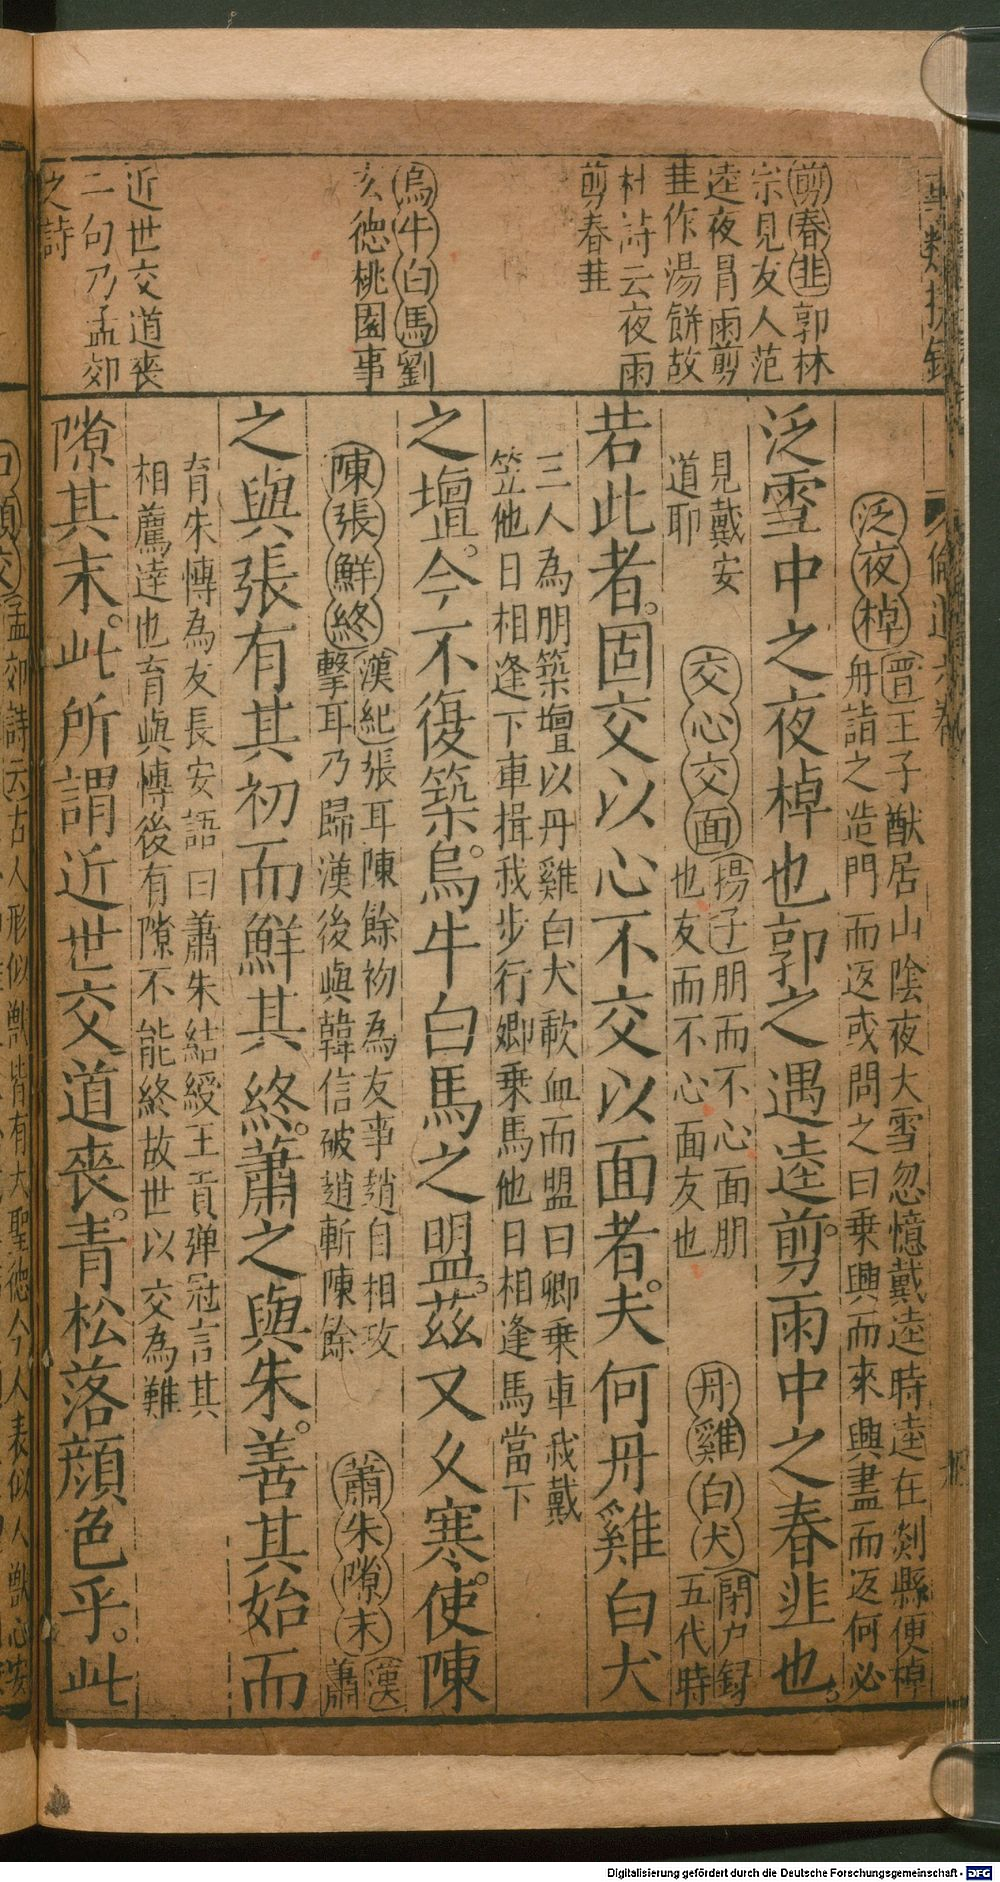 剪春韭郭林
宗見友人范
逵夜冐雨剪
韭作湯餅故
杜詩云夜雨
剪春韭
烏牛白馬劉
玄德桃園事
近世交道喪
二句乃孟郊
之詩
泛夜棹晋王子猷居山陰夜大雪忽憶戴逵時逵在剡縣便棹
舟詣之造門而返或問之曰乗興而來興盡而返何必
泛雪中之夜棹也郭之遇逵剪雨中之春韭也
見戴安
道耶
交心交面揚子朋而不心面朋
也友而不心面友也
丹雞白犬閉户録
五代時
若此者固交以心不交以面者夫何丹雞白犬
三人為朋築壇以丹雞白犬歃血而盟曰卿乗車我戴
笠他日相逢下車揖我步行卿乗馬他日相逢馬當下
之壇今不復築烏牛白馬之盟茲又久寒使陳
陳張鮮終漢紀張耳陳餘初為友事趙自相攻
擊耳乃歸漢後與韓信破趙斬陳餘
蕭朱隙末漢
蕭
之與張有其初而鮮其終蕭之與朱善其始而
育朱愽為友長安語曰蕭朱結綬王貢弹冠言其
相薦達也育與愽後有隙不能終故世以交為難
隙其末此所謂近世交道喪青松落顔色乎此
孟郊詩云古人形似獸皆有大聖德今人表似人獸心安
Digitalisierung gefördert durch die Deutsche Forschungsgemeinschaft - DFG